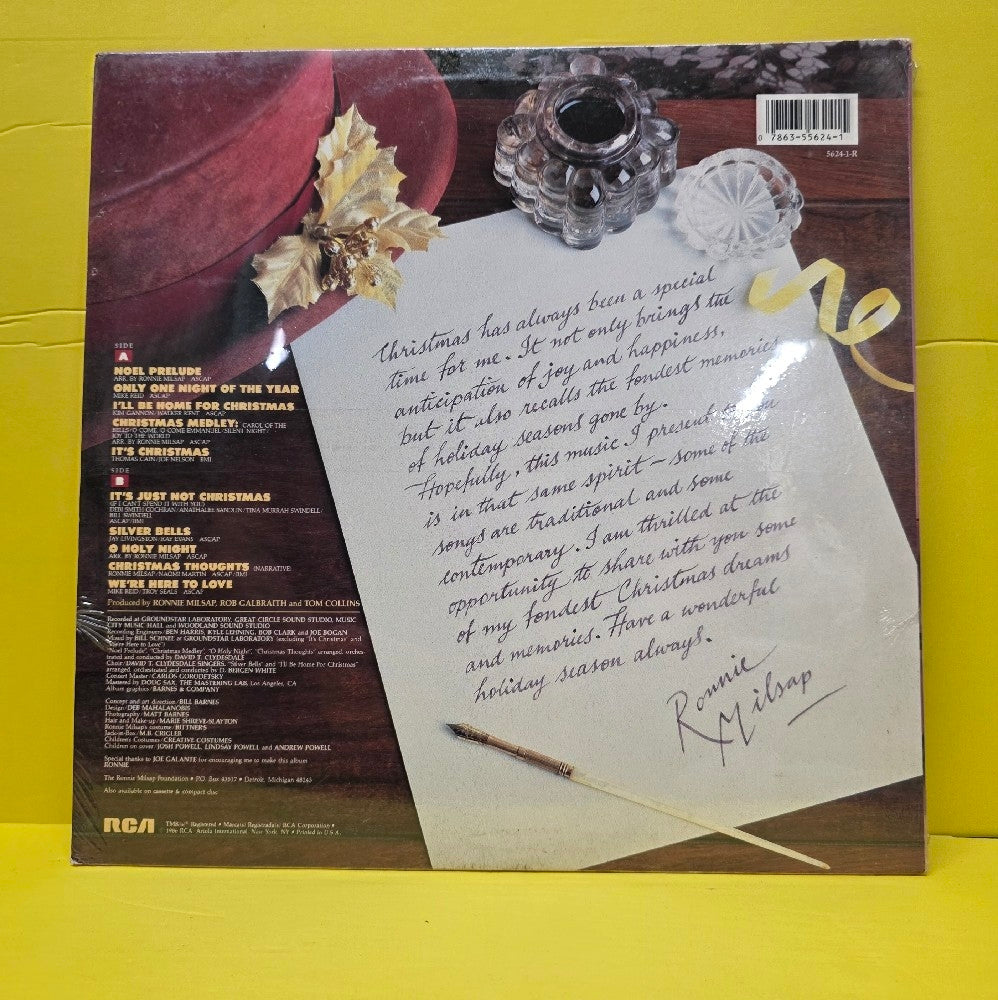 0 7863-55624-1
5624-1-R
SIDE
A
NOEL PRELUDE
ARR. BY RONNIE MILSAP ASCAP
ONLY ONE NIGHT OF THE YEAR
MIKE REID ASCAP
I'LL BE HOME FOR CHRISTMAS
KIM GANNON/WALKER KENT ASCAP
CHRISTMAS MEDLEY: CAROL OF THE
BELLS/O COME, O COME EMMANUEL/SILENT NIGHT/
JOY TO THE WORLD
ARR. BY RONNIE MILSAP ASCAP
IT'S CHRISTMAS
THOMAS CAIN/JOE NELSON BMI
SIDE
B
IT'S JUST NOT CHRISTMAS
(IF I CAN'T SPEND IT WITH YOU)
DEBI SMITH COCHRAN/ANATHALEE SANDLIN/TINA MURRAH SWINDELL/
BILL SWINDELL
ASCAP/BMI
SILVER BELLS
JAY LIVINGSTON/RAY EVANS ASCAP
O HOLY NIGHT
ARR. BY RONNIE MILSAP ASCAP
CHRISTMAS THOUGHTS (NARRATIVE)
RONNIE MILSAP/NAOMI MARTIN ASCAP/BMI
WE'RE HERE TO LOVE
MIKE REID/TROY SEALS ASCAP
Produced by RONNIE MILSAP, ROB GALBRAITH and TOM COLLINS
Recorded at GROUNDSTAR LABORATORY, GREAT CIRCLE SOUND STUDIO, MUSIC
CITY MUSIC HALL and WOODLAND SOUND STUDIO
Recording Engineers: BEN HARRIS, KYLE LEHNING, BOB CLARK and JOE BOGAN
Mixed by BILL SCHNEE at GROUNDSTAR LABORATORY (excluding "It's Christmas" and
"We're Here to Love")
"Noel Prelude", "Christmas Medley", "O Holy Night", "Christmas Thoughts" arranged, orches-
trated and conducted by DAVID T. CLYDESDALE
Choir/DAVID T. CLYDESDALE SINGERS. "Silver Bells" and "I'll Be Home For Christmas"
arranged, orchestrated and conducted by D. BERGEN WHITE
Concert Master/CARLOS GORODETSKY
Mastered by DOUG SAX, THE MASTERING LAB, Los Angeles, CA
Album graphics/BARNES & COMPANY
Concept and art direction/BILL BARNES
Design/DEB MAHALANOBIS
Photography/MATT BARNES
Hair and Make-up/MARIE SHRIVE-SLAYTON
Ronnie Milsap's costume/BITTNER'S
Jack-in-Box/M.B. CRIGLER
Children's Costumes/CREATIVE COSTUMES
Children on cover/JOSH POWELL, LINDSAY POWELL and ANDREW POWELL
Special thanks to JOE GALANTE for encouraging me to make this album
RONNIE
The Ronnie Milsap Foundation • P.O. Box 43517 • Detroit, Michigan 48243
Also available on cassette & compact disc
RCA
TMK(s)® Registered • Marca(s) Registrada(s) RCA Corporation •
1986 RCA/Ariola International, New York, NY • Printed in U.S.A.
Christmas has always been a special
time for me. It not only brings the
anticipation of joy and happiness,
but it also recalls the fondest memories
of holiday seasons gone by.
Hopefully, this music I present
is in that same spirit — some of the
songs are traditional and some
contemporary. I am thrilled at the
opportunity to share with you some
of my fondest Christmas dreams
and memories. Have a wonderful
holiday season always.
Ronnie
Milsap